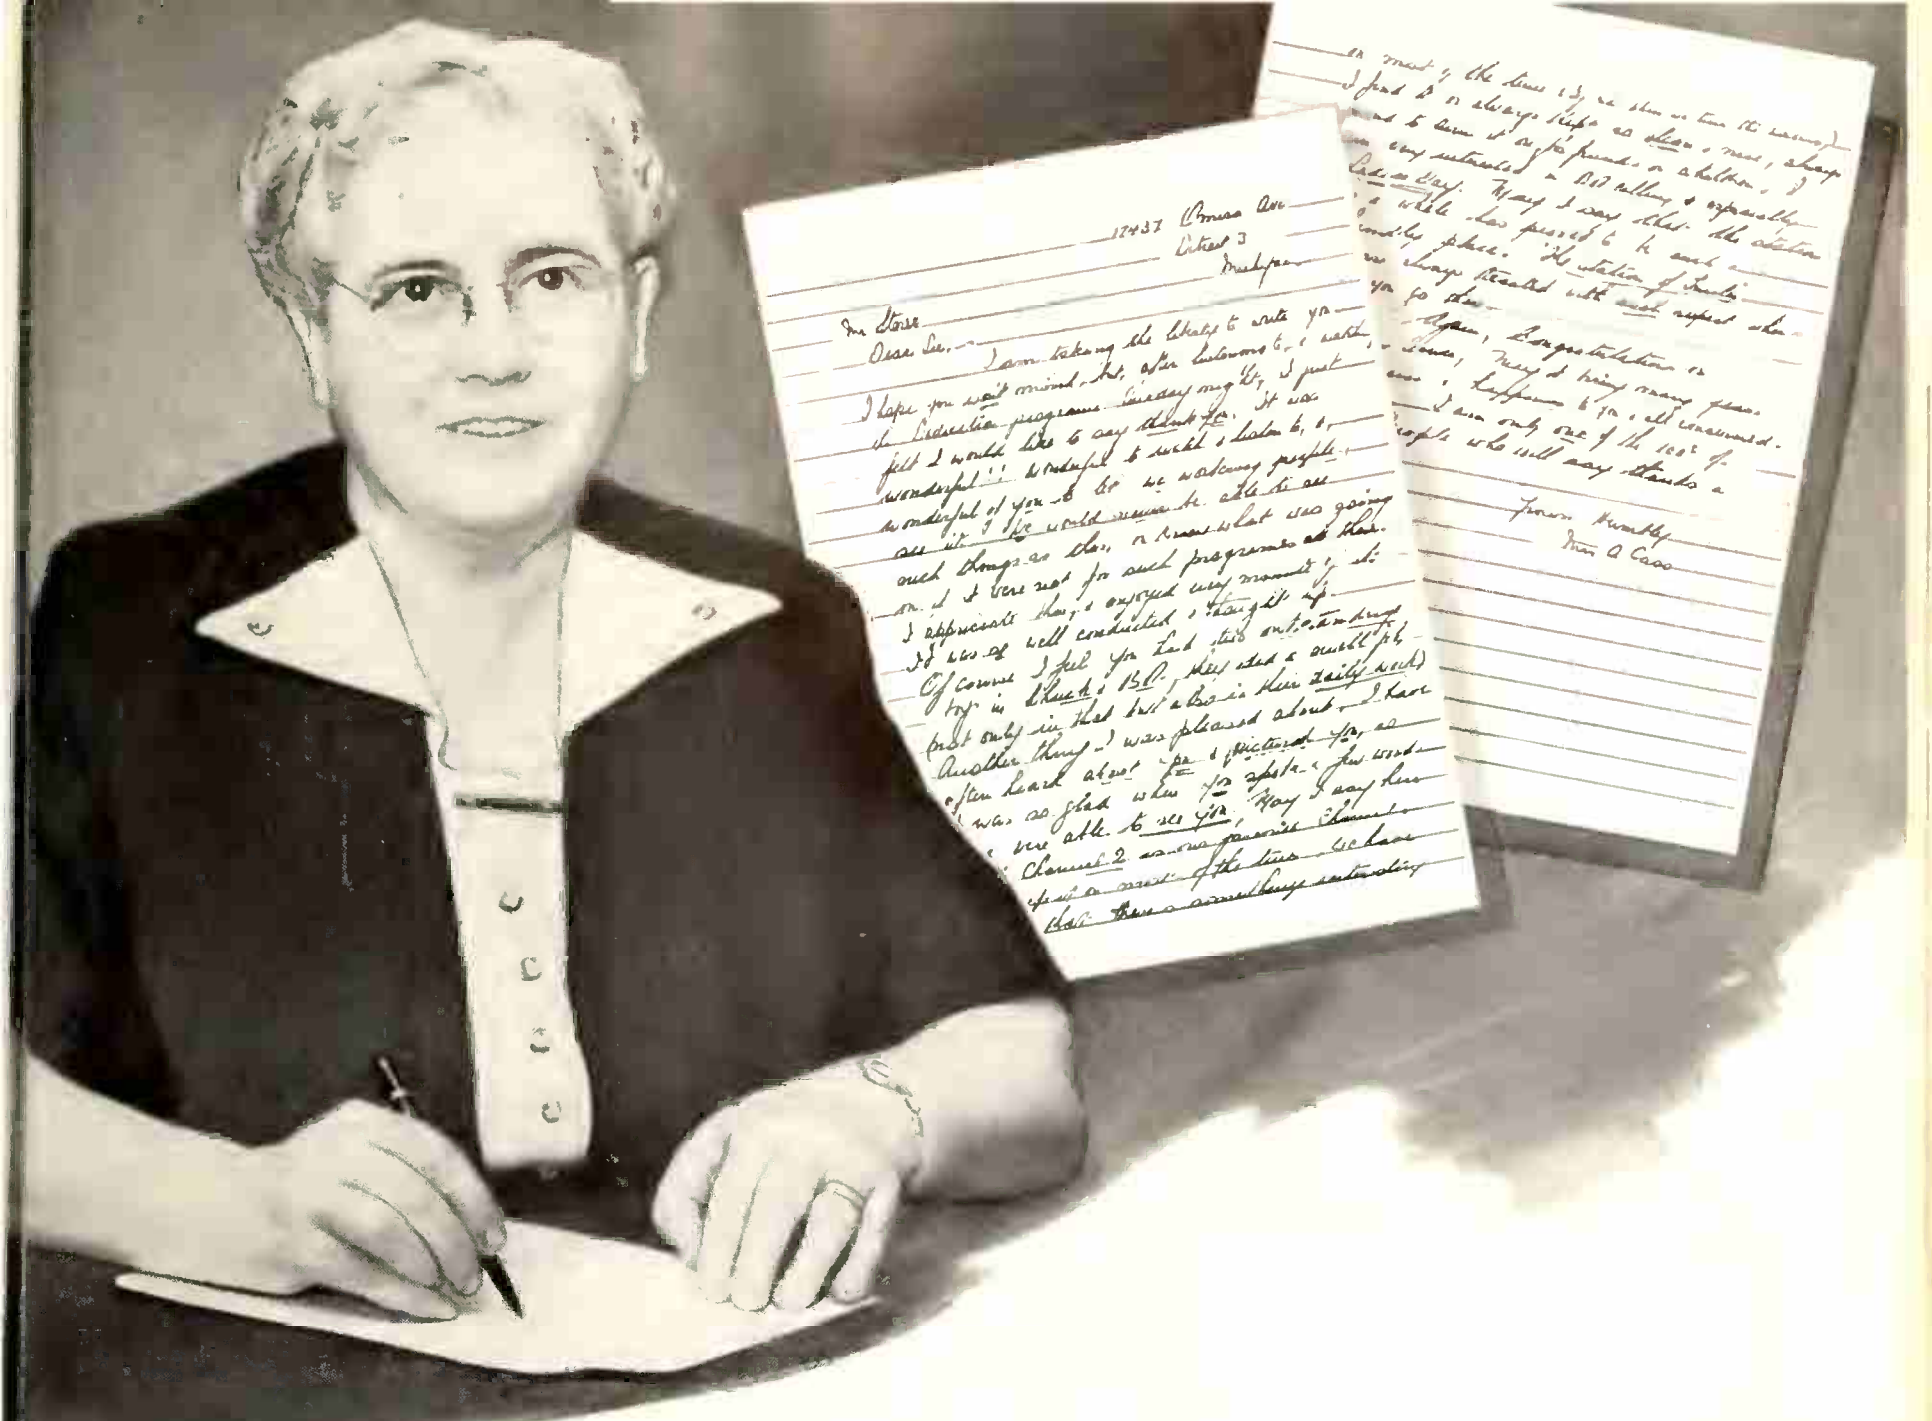 17437
Detroit 3
Michigan
Mr Storer
Dear Sir, –
I am taking the liberty to write you
I hope you won't mind, but, after listening to, & watching
the Dedication programe Tuesday night, I just
felt I would like to say thank you. It was
wonderful!! wonderful to watch & listen to, &,
wonderful of you to let we working people,
see it, we would never be able to see
such things as this, or know what was going
on if it were not for such programes as this.
I appreciate this, & enjoyed every moment of it.
It was so well conducted & thought up.
Of course I feel you had two outstanding
boys in Chuck & B.D., they did a swell job,
(not only in that but also in their daily work)
Another thing I was pleased about, I have
often heard about you & pictured you, so
I was so glad when you spoke a few words
& were able to see you, May I say here
Channel 2 is our favorite Channel
on most of the time. We have
that there is something interesting
on most of the time
I find it is always kept so clean & nice, always
to have it on for friends or children. I
am very interested in and especially
Ladies Day. May I say that the station
as a whole has proved to be such a
friendly place. The station of Smiles
always treated with such respect when
you go there
Again, Congratulations on
May it bring many years
happiness to you & all concerned.
I am only one of the 100s of
people who will say thanks a
Yours Humbly
Mrs A Cass